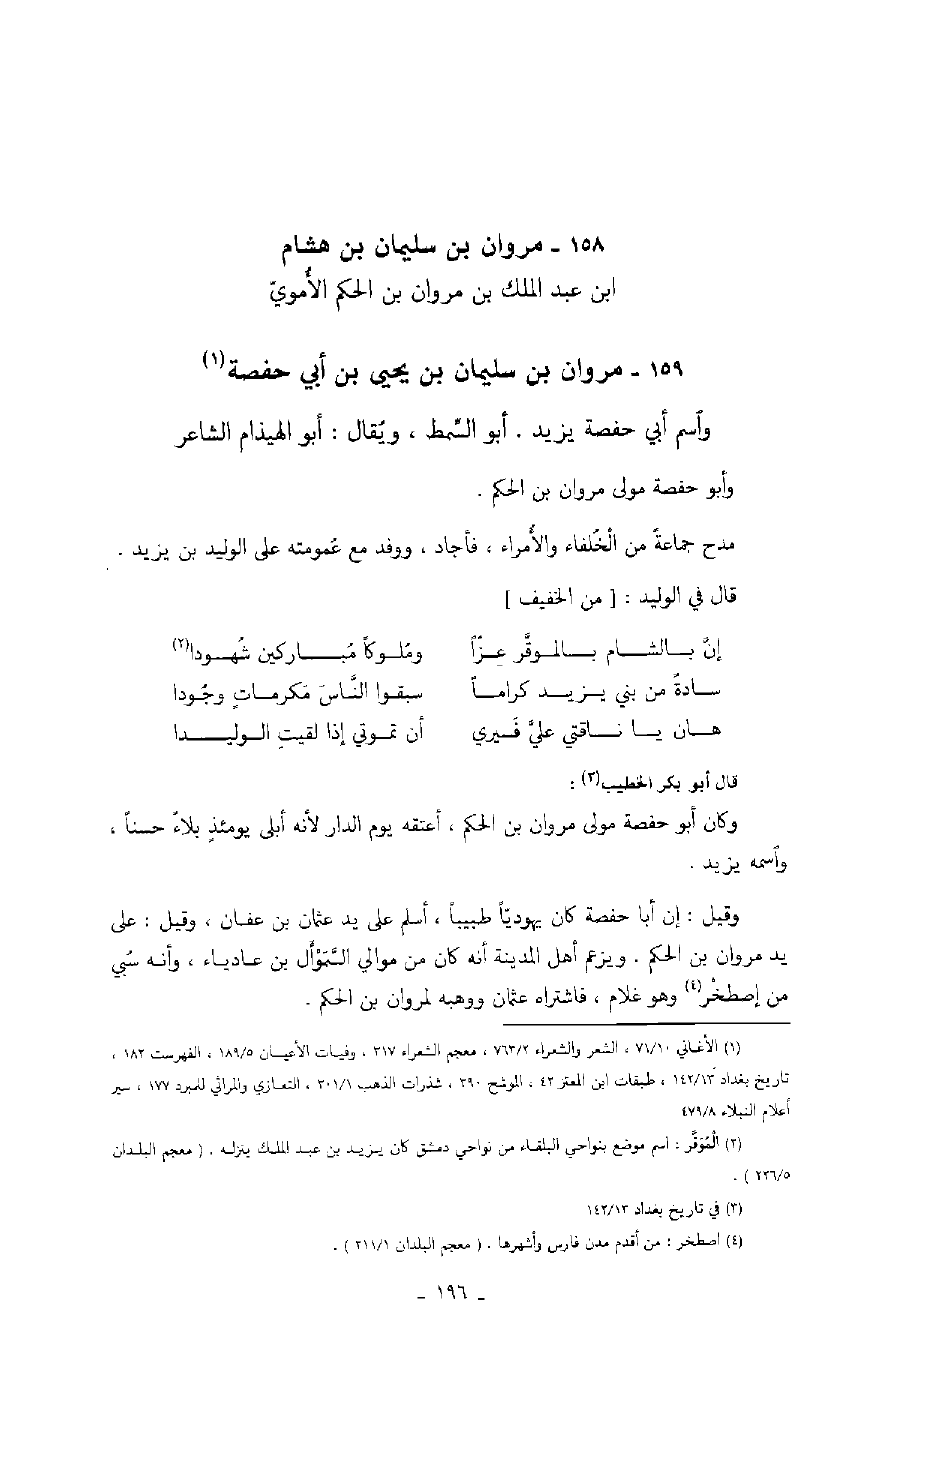 ١٥٨ ـ مروان بن سليمان بن هشام
ابن عبد الملك بن مروان بن الحكم الأُمويّ
١٥٩ ـ مروان بن سليمان بن يحيى بن أبي حفصة(١)
وٱسم أبي حفصة يزيد . أبو السِّمط ، ويُقال : أبو الهيذام الشاعر
وأبو حفصة مولى مروان بن الحكم .
مدح جماعةً من الْخُلفاء والأُمراء ، فأجاد ، ووفد مع عُمومته على الوليد بن يزيد .
قال في الوليد : [ من الخفيف ]
إنَّ بـالشـام بـالموقَّر عِـزّاً ومُلـوكاً مُبـاركين شُهـودا(٢)
سـادةً من بني يـزيـد كرامـاً سبقـوا النَّاسَ مَكرمـاتٍ وجُودا
هـان يـا نـاقتي عليَّ فَسِيري أن تمـوتي إذا لقيتِ الـوليـدا
قال أبو بكر الخطيب(٣) :
وكان أبو حفصة مولى مروان بن الحكم ، أعتقه يوم الدار لأنه أبلى يومئذٍ بلاءً حسناً ،
وٱسمه يزيد .
وقيل : إن أبا حفصة كان يهوديّاً طبيباً ، أسلم على يد عثمان بن عفان ، وقيل : على
يد مروان بن الحكم . ويزعم أهل المدينة أنه كان من موالي السَّمَوْأَل بن عاديـاء ، وأنـه سُبي
من إصطخْر(٤) وهو غلام ، فاشتراه عثمان ووهبه لمروان بن الحكم .
(١) الأغاني ٧١/١٠ ، الشعر والشعراء ٧٦٣/٢ ، معجم الشعراء ٣١٧ ، وفيات الأعيـان ١٨٩/٥ ، الفهرست ١٨٢ ،
تاريخ بغداد ١٤٢/١٣ ، طبقات ابن المعتز ٤٢ ، الموشح ٣٩٠ ، شذرات الذهب ٣٠١/١ ، التعازي والمراثي للمبرد ١٧٧ ، سير
أعلام النبلاء ٤٧٩/٨
(٢) الْمُوَقَّر : اسم موضع بنواحي البلقـاء من نواحي دمشق كان يـزيـد بن عبـد الملـك ينزلـه . ( معجم البلـدان
٢٢٦/٥ ) .
(٣) في تاريخ بغداد ١٤٢/١٣
(٤) اصطخر : من أقدم مدن فارس وأشهرها . ( معجم البلدان ٢١١/١ ) .
ـ ١٩٦ ـ